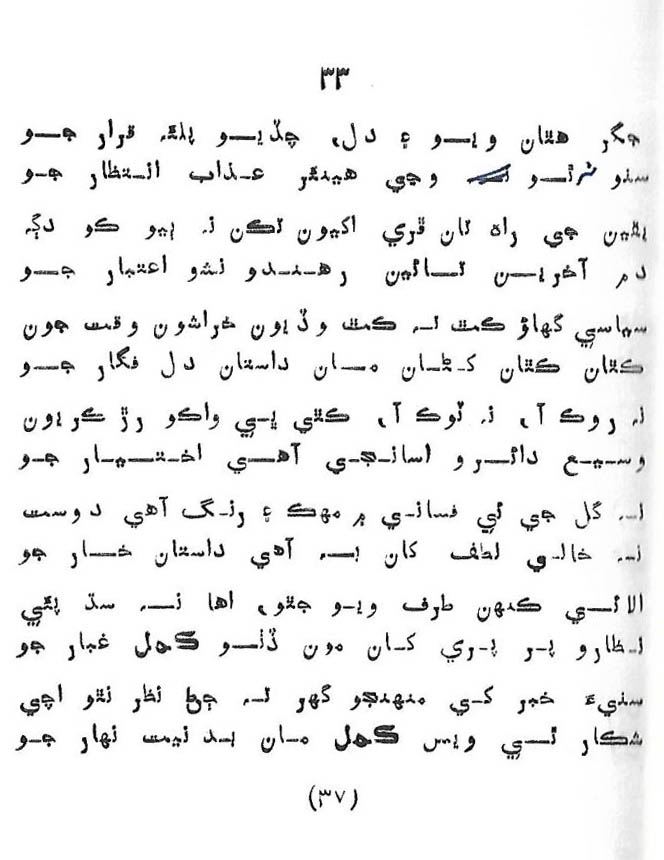 ٣٣
جگر هٿان ويو ۽ دل، ڇڏيو پلئه قرار جو
سندو نه وڃي هينئر عذاب انتظار جو
پٿين جي راه تان ڦري اکيون ٽڪن نه ٻيو ڪو دڳه
دم آخرين تائين رهندو نشو اعتبار جو
سياسي گهاؤ ڪٿ نه ڪٿ وڏيون خراشون وقت جون
ڪٿان ڪٿان کڻان مان داستان دل فگار جو
نه روڪ آ، نه ٽوڪ آ، ڪٿي پي واڪو رڙ ڪريون
وسيع دائرو اسانجي آهي اختيار جو
نه گل جي ئي فساني ۾ مهڪ ۽ رنگ آهي دوست
نه خالي لطف کان به آهي داستان خار جو
الائي ڪنهن طرف ويو جٿو، اها نه سڌ پئي
نظارو پر پري کان مون ڏٺو گهمل غبار جو
سنيءَ خبر کي منهنجو گهر نه ڇڻ نظر نٿو اچي
شڪار ٿي ويس گهمل مان بدنيت نهار جو
(٣٧)